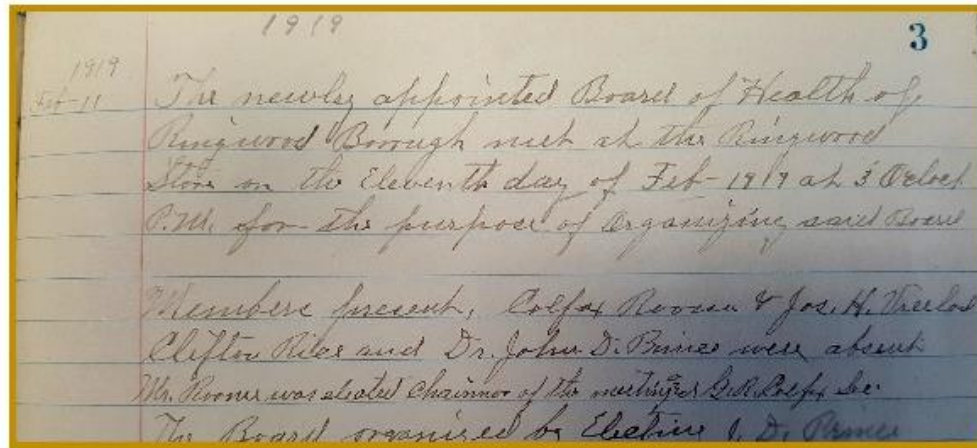 1919
3
1919
Feb-11
The newley appointed Board of Health of
Ringwood Borough meet at the Ringwood
Store on the Eleventh day of Feb-1919 at 3 Oclock
P.M. for the purpose of Organizing said Board
Members present, Colfax & Jos. H.
Clifton and Dr. John D. were absent
Mr. was elected Chairman of the meeting & G.R. Colfax Sec
The Board organized by Electing J. D.